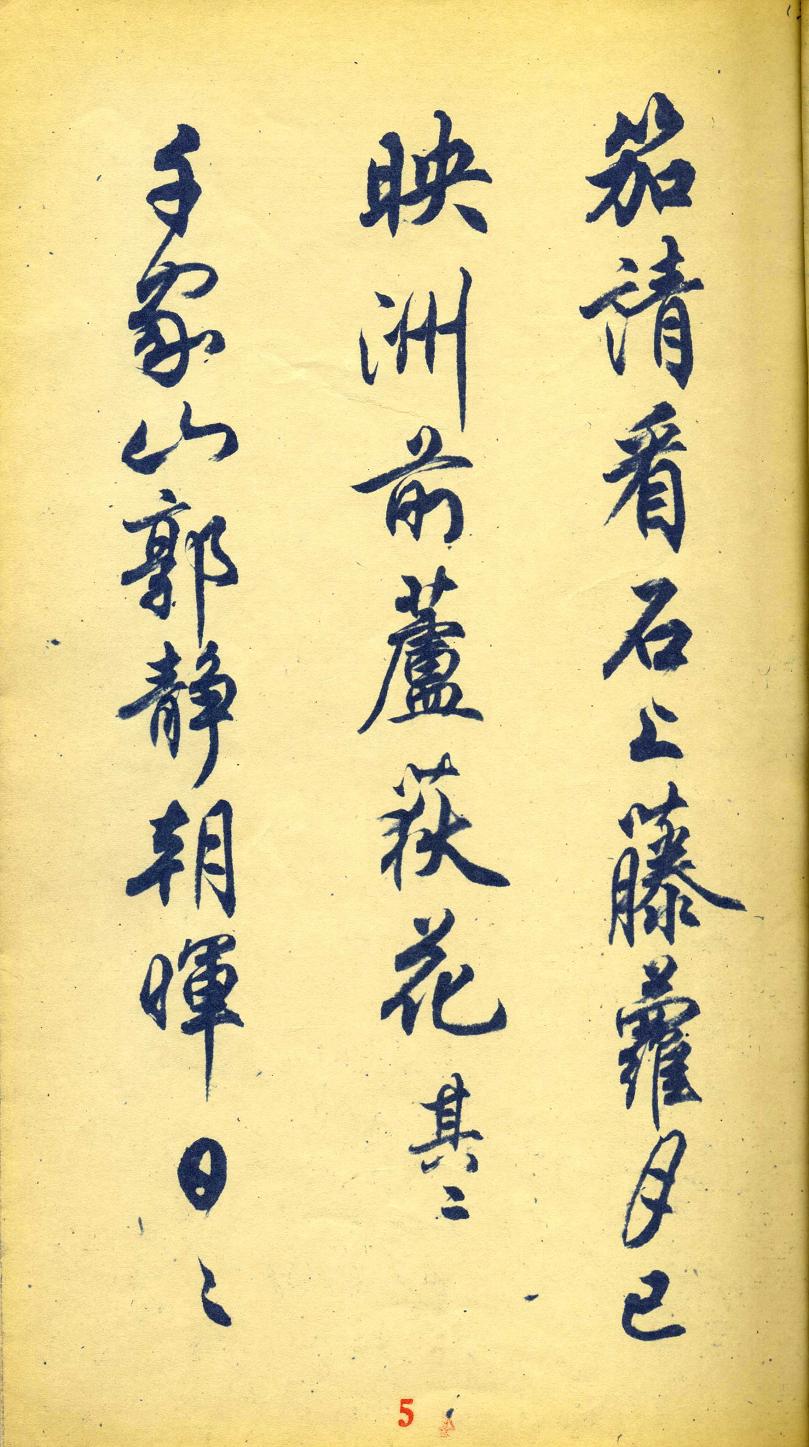 笳請看石上藤蘿月已
映洲前蘆荻花其二
千家山郭靜朝暉日〻
5